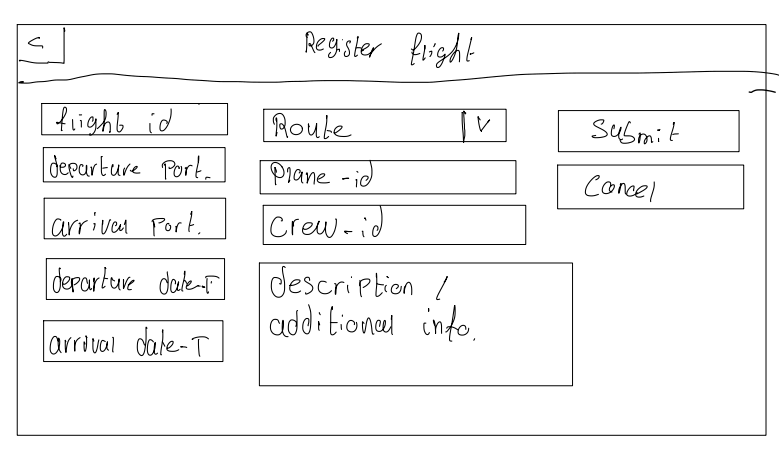 <
Register flight
flight id
departure Port.
arrival Port.
departure date-T
arrival date-T
Route V
Plane-id
Crew-id
description /
additional info.
Submit
Cancel